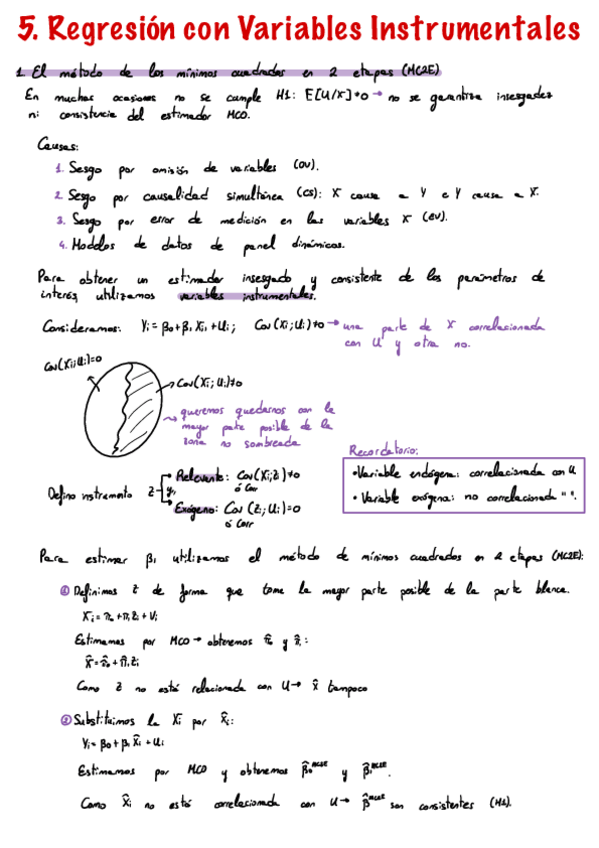 5. Regresión con Variables Instrumentales
1. El método de los mínimos cuadrados en 2 etapas (MC2E)
En muchas ocasiones no se cumple H1: E[U/X]≠0 → no se garantiza insesgadez
ni consistencia del estimador MCO.
Causas:
1. Sesgo por omisión de variables (OV).
2. Sesgo por causalidad simultánea (CS): X causa a Y e Y causa a X.
3. Sesgo por error de medición en las variables X (EV).
4. Modelos de datos de panel dinámicos.
Para obtener un estimador insesgado y consistente de los parámetros de
interés, utilizamos variables instrumentales.
Consideramos: Yi = β0 + β1 Xi + Ui ; Cov(Xi; Ui) ≠ 0 → una parte de X correlacionada
con U y otra no.
Cov(Xi; Ui)=0
Cov(Xi; Ui)≠0
queremos quedarnos con la
mayor parte posible de la
zona no sombreada
Recordatorio:
• Variable endógena: correlacionada con U
• Variable exógena: no correlacionada " ".
Defino instrumento Z
Relevante: Cov(Xi; Zi) ≠ 0
ó Corr
y,
Exógeno: Cov(Zi; Ui) = 0
ó Corr
Para estimar β1 utilizamos el método de mínimos cuadrados en 2 etapas (MC2E):
① Definimos Z de forma que tome la mayor parte posible de la parte blanca.
Xi = π0 + π1 Zi + Vi
Estimamos por MCO → obtenemos π̂0 y π̂1:
X̂ = π̂0 + π̂1 Zi
Como Z no está relacionada con U → X̂ tampoco
② Substituimos la Xi por X̂i:
Yi = β0 + β1 X̂i + Ui
Estimamos por MCO y obtenemos β̂0^MC2E y β̂1^MC2E.
Como X̂i no está correlacionada con U → β̂^MC2E son consistentes (H1).